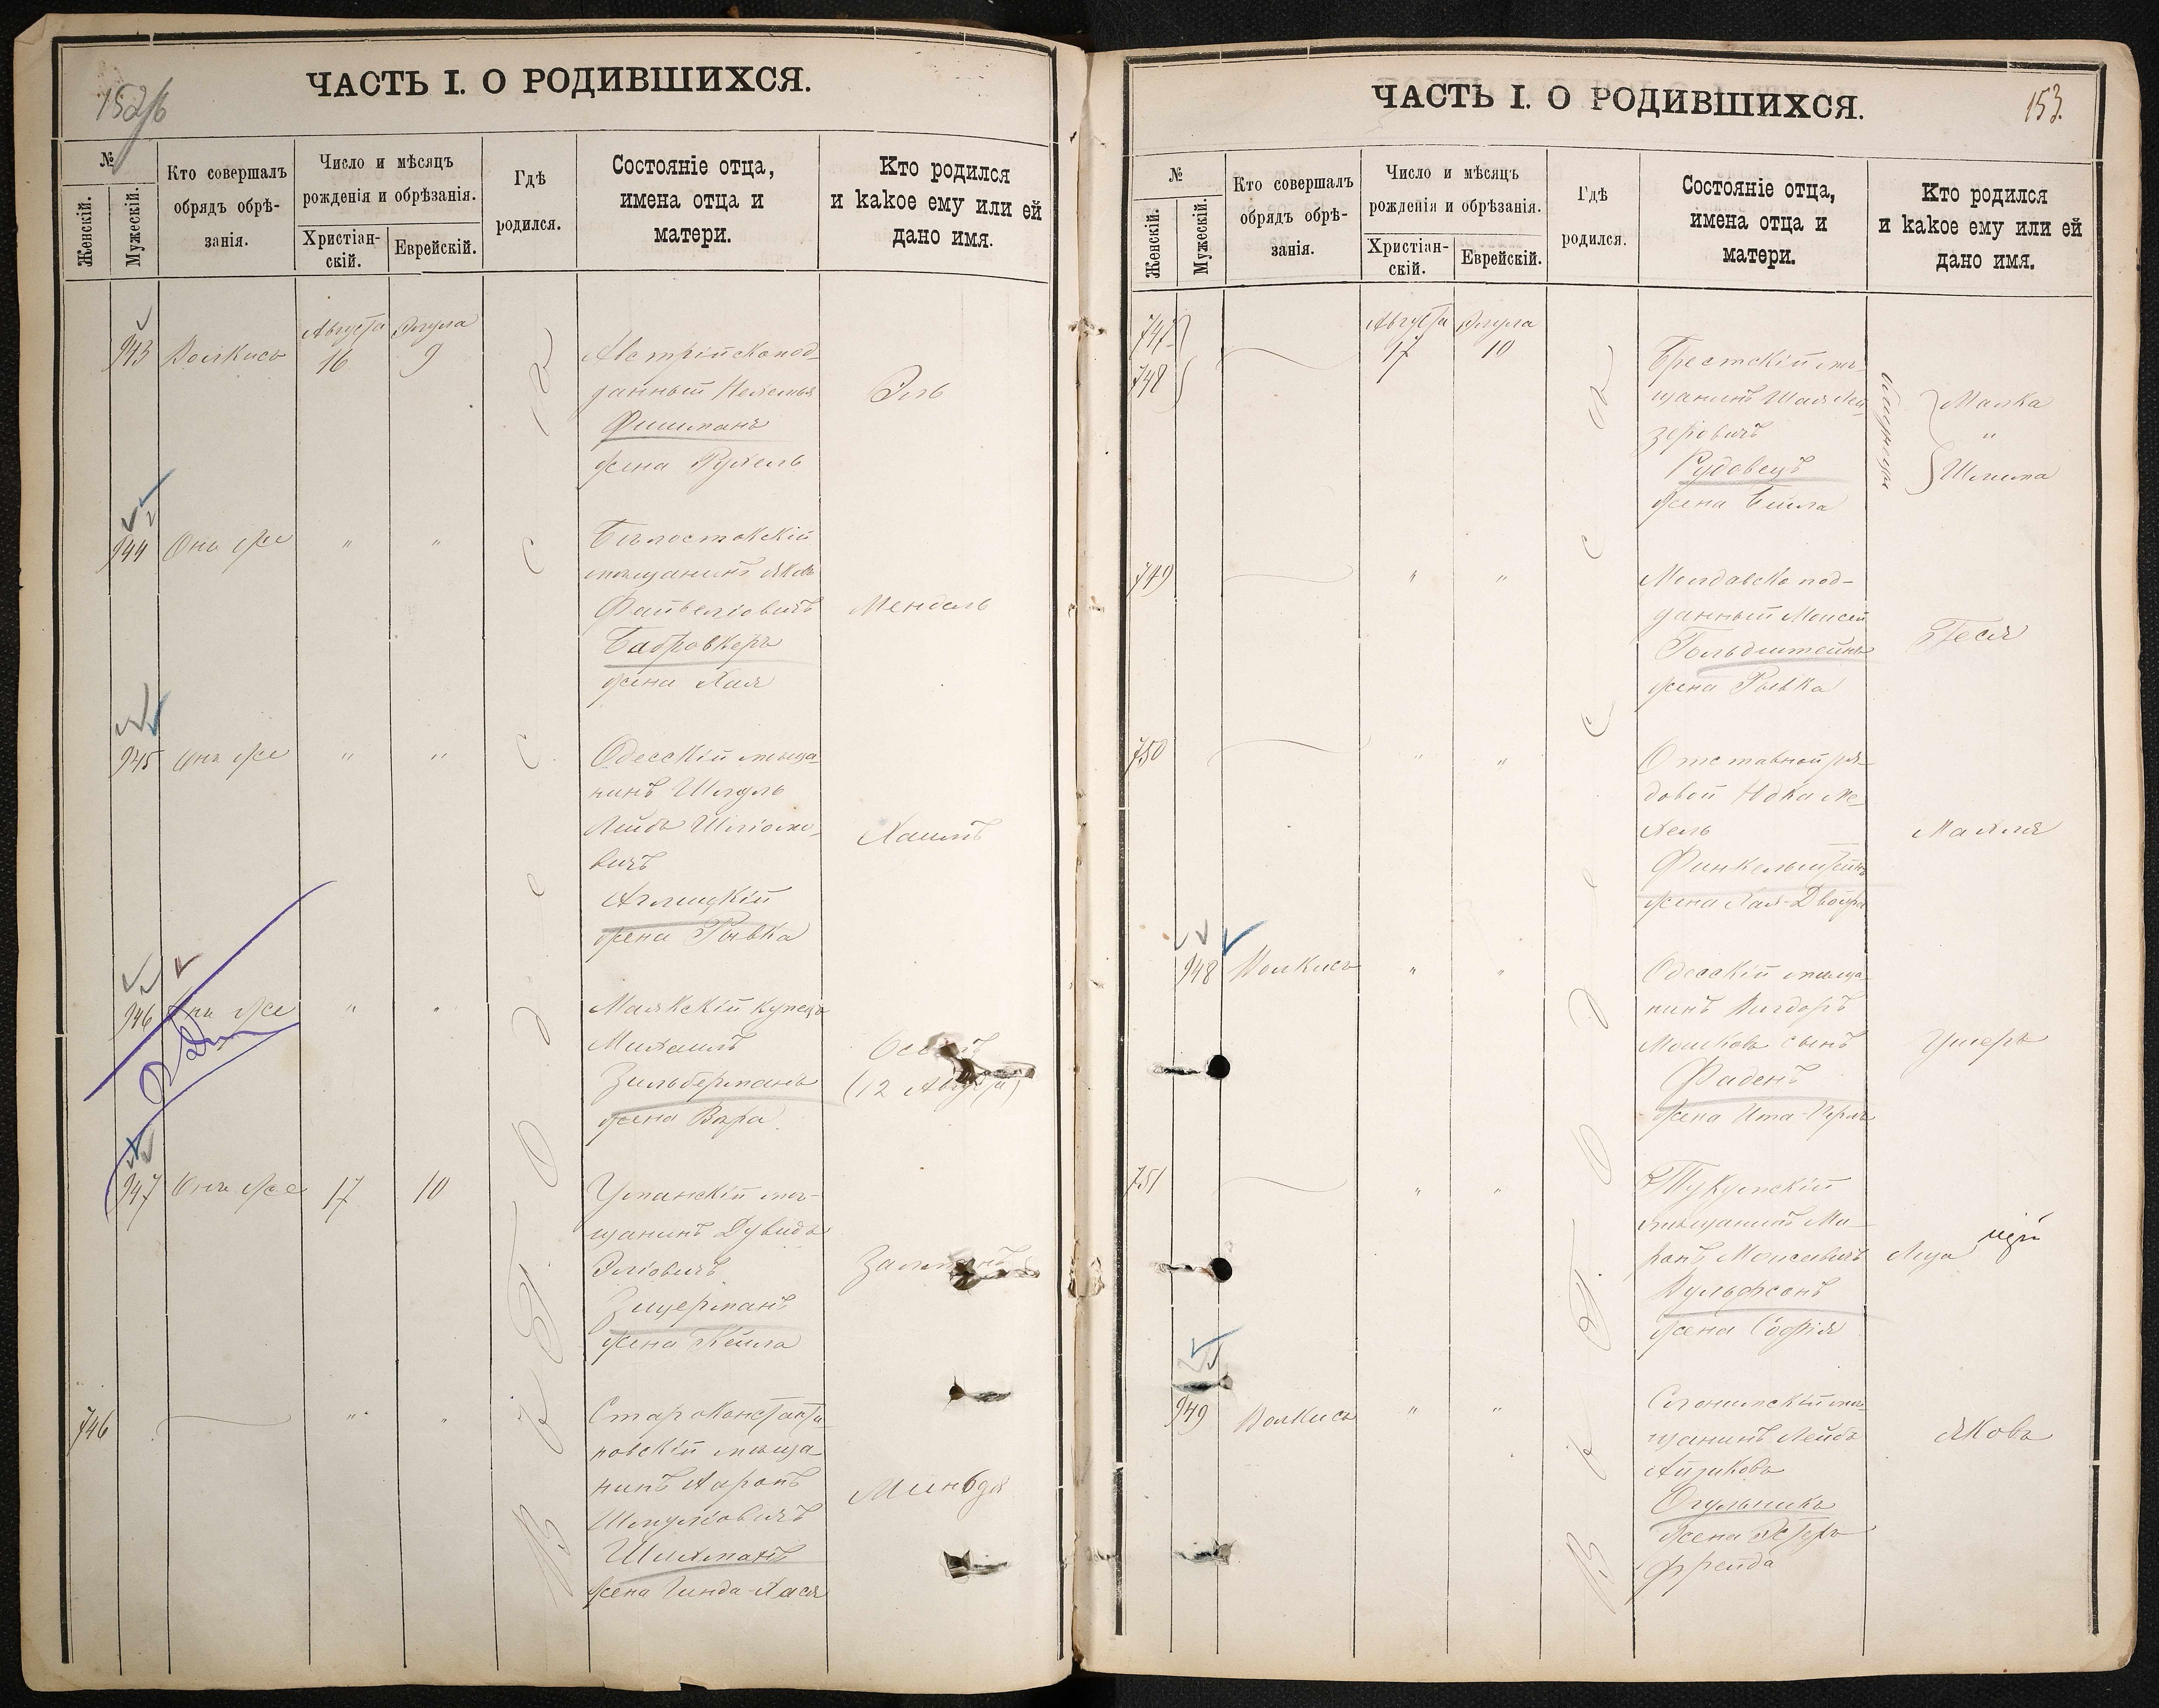 152/б
ЧАСТЬ I. О РОДИВШИХСЯ.
№
Женскій.
Мужескій.
Кто совершалъ
обрядъ обрѣ-
занія.
Число и мѣсяцъ
рожденія и обрѣзанія.
Христіан-
скій.
Еврейскій.
Гдѣ
родился.
Состояніе отца,
имена отца и
матери.
Кто родился
и какое ему или ей
дано имя.
Августа Элула
943 Волкисъ 16 9
Австрійскопод-
данный
Фишманъ
жена Рухель
Эль
944 Онъ же " "
Бѣлостокскій
мѣщанинъ Яковъ
Файвеліовичъ
Бабровкеръ
жена Хая
Мендель
945 Онъ же " "
Одесскій мѣща-
нинъ Шмуль
Лейбъ Шліомо-
вичъ
Аглицкій
жена Рывка
Хаимъ
946 Онъ же " "
Маякскій купецъ
Михаилъ
Зильберманъ
жена Вѣра
(12 Августа)
947 Онъ же 17 10
Уманскій мѣ-
щанинъ Дувидъ
Эліовичъ
Зицерманъ
жена Кейла
Залманъ
746 " "
Староконстанти-
новскій мѣща-
нинъ Аронъ
Шмуліовичъ
Шихманъ
жена Гинда-Хася
Миньдя
Въ Одессѣ
153.
ЧАСТЬ I. О РОДИВШИХСЯ.
№
Женскій.
Мужескій.
Кто совершалъ
обрядъ обрѣ-
занія.
Число и мѣсяцъ
рожденія и обрѣзанія.
Христіан-
скій.
Еврейскій.
Гдѣ
родился.
Состояніе отца,
имена отца и
матери.
Кто родился
и какое ему или ей
дано имя.
Августа Элула
747
748
17 10
Брестскій мѣ-
щанинъ Шая Лей-
зеровичъ
Рудовецъ
жена Бейла
близнецы
Малка
"
Шлима
749 " "
Молдавско под-
данный Моисей
Гольдштейнъ
жена Рывка
Геся
750 " "
Отставной ря-
довой Юдка Ме-
хель
Финкельштейнъ
жена Хая-Двойра
Махля
948 Волкисъ " "
Одесскій мѣща-
нинъ Вигдоръ
Мошковъ сынъ
Фаденъ
жена Ита-Перля
Ушеръ
751 " "
Тукумскій
мѣщанинъ Ми-
ронъ Моисеевичъ
Вульфсонъ
жена Софія
949 Волкисъ " "
Слонимскій мѣ-
щанинъ Лейба
Айзиковъ
Огульникъ
жена Эстеръ
Фрейда
Яковъ
Въ Одессѣ